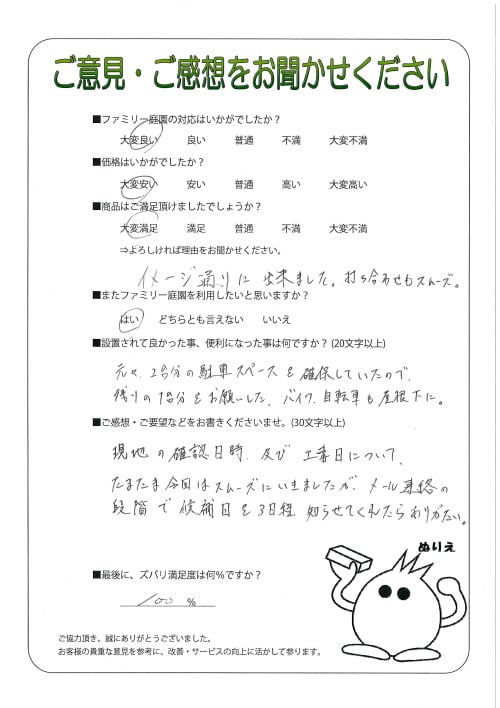 ご意見・ご感想をお聞かせください
■ファミリー庭園の対応はいかがでしたか？
大変良い 良い 普通 不満 大変不満
■価格はいかがでしたか？
大変安い 安い 普通 高い 大変高い
■商品はご満足頂けましたでしょうか？
大変満足 満足 普通 不満 大変不満
⇒よろしければ理由をお聞かせください。
イメージ通りに出来ました。打ち合わせもスムーズ。
■またファミリー庭園を利用したいと思いますか？
はい どちらとも言えない いいえ
■設置されて良かった事、便利になった事は何ですか？(20文字以上)
元々、2台分の駐車スペースを確保していたので、
残りの1台分をお願いした、バイク、自転車も屋根下に。
■ご感想・ご要望などをお書きくださいませ。(30文字以上)
現地の確認日時、及び工事日について、
たまたま今回はスムーズにいきましたが、メール連絡の
段階で候補日を3日程、知らせてくれたらありがたい。
ぬりえ
■最後に、ズバリ満足度は何％ですか？
100 %
ご協力頂き、誠にありがとうございました。
お客様の貴重な意見を参考に、改善・サービスの向上に活かして参ります。